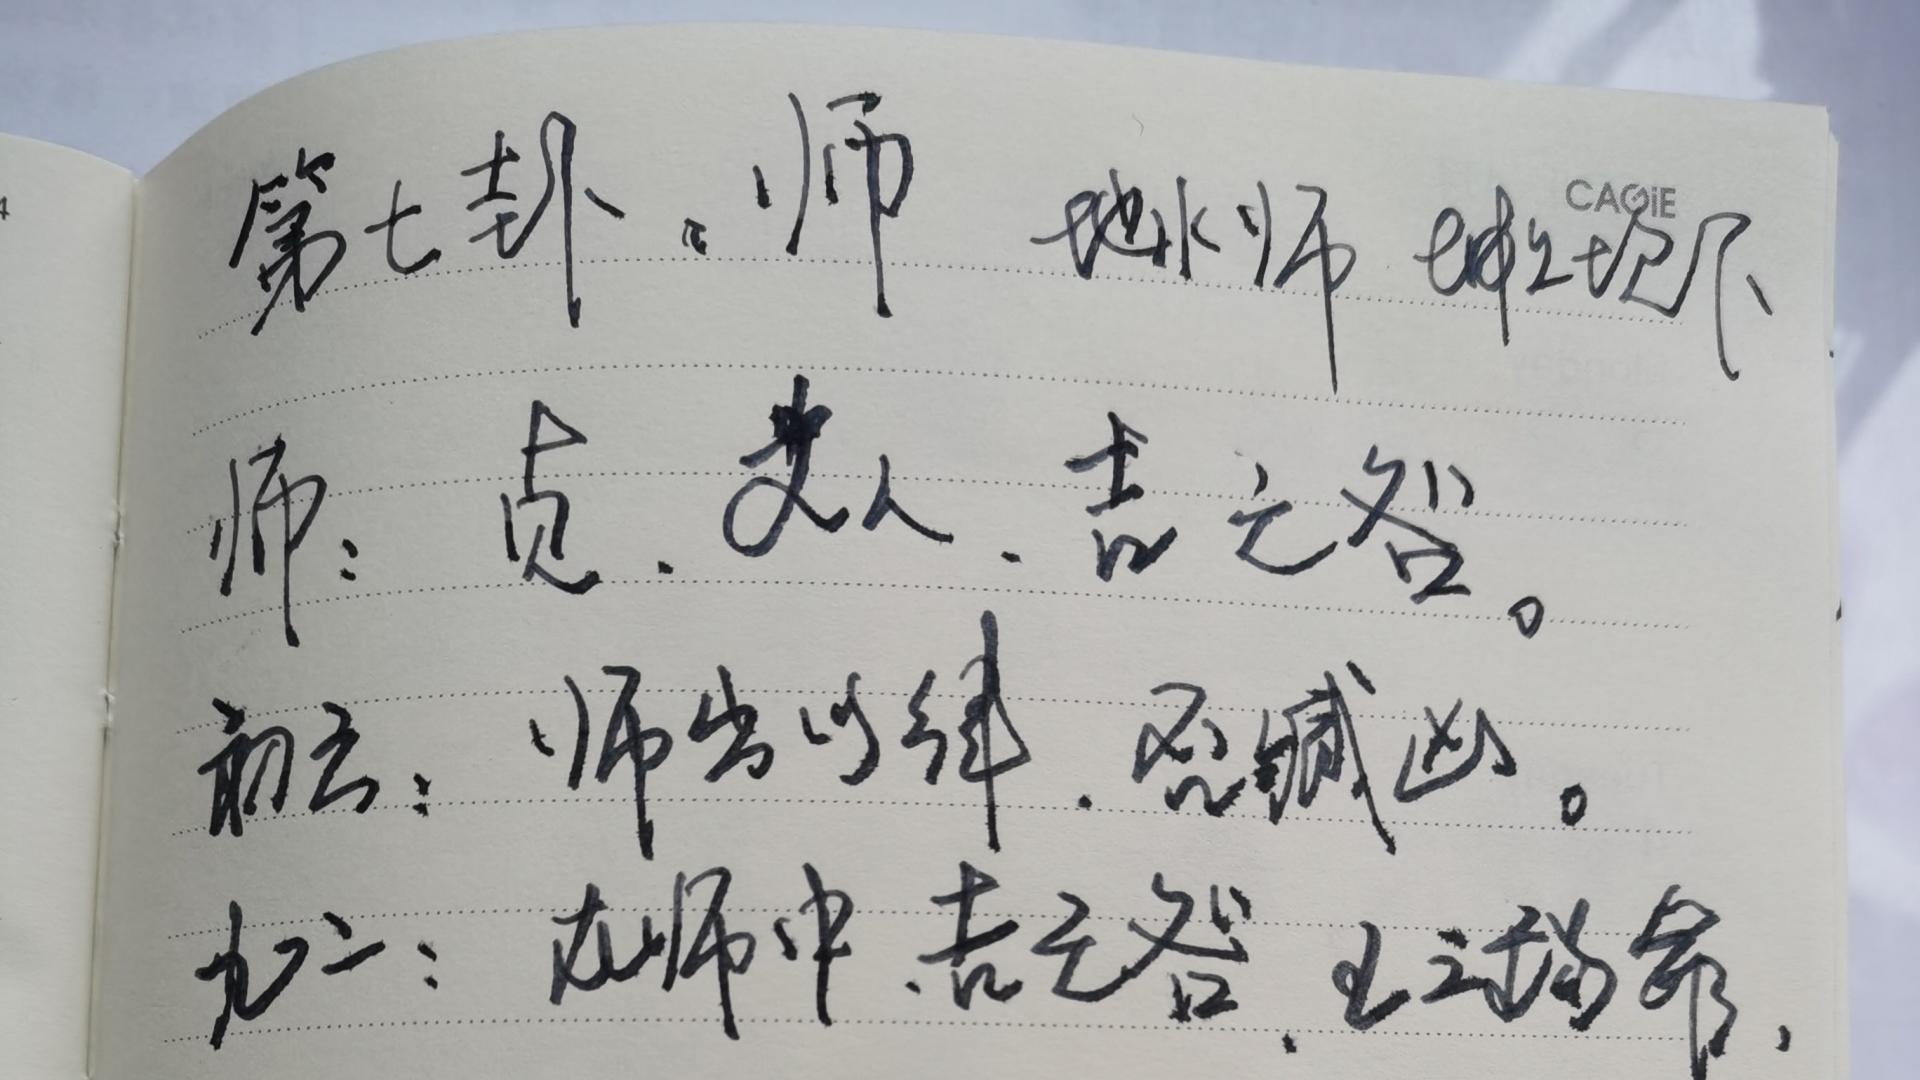 第七卦:师 地水师 坤上坎下
CAGiE
师:贞.丈人.吉无咎。
初六:师出以律.否臧凶。
九二:在师中.吉无咎.王三锡命.
4